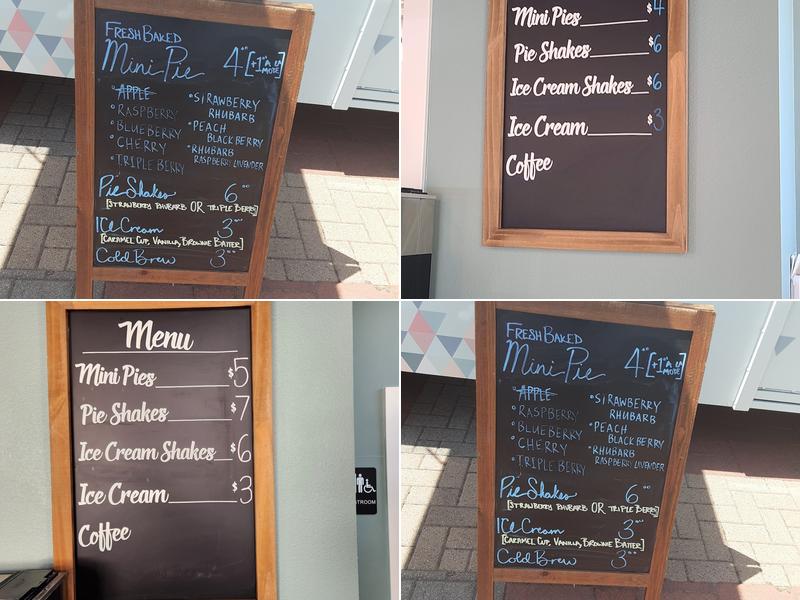 FRESH BAKED
Mini Pie 4.00 [+1.00 A LA MODE]
•APPLE
•RASPBERRY
•BLUEBERRY
•CHERRY
•TRIPLE BERRY
•STRAWBERRY RHUBARB
•PEACH BLACKBERRY
•RHUBARB RASPBERRY LAVENDER
Pie Shakes 6.00
[STRAWBERRY RHUBARB OR TRIPLE BERRY]
Ice Cream 3.00
[CARAMEL CUP, VANILLA, BROWNIE BATTER]
Cold Brew 3.00
Mini Pies $4
Pie Shakes $6
Ice Cream Shakes $6
Ice Cream $3
Coffee
Menu
Mini Pies $5
Pie Shakes $7
Ice Cream Shakes $6
Ice Cream $3
Coffee
FRESH BAKED
Mini Pie 4.00 [+1.00 A LA MODE]
•APPLE
•RASPBERRY
•BLUEBERRY
•CHERRY
•TRIPLE BERRY
•STRAWBERRY RHUBARB
•PEACH BLACKBERRY
•RHUBARB RASPBERRY LAVENDER
Pie Shakes 6.00
[STRAWBERRY RHUBARB OR TRIPLE BERRY]
Ice Cream 3.00
[CARAMEL CUP, VANILLA, BROWNIE BATTER]
Cold Brew 3.00